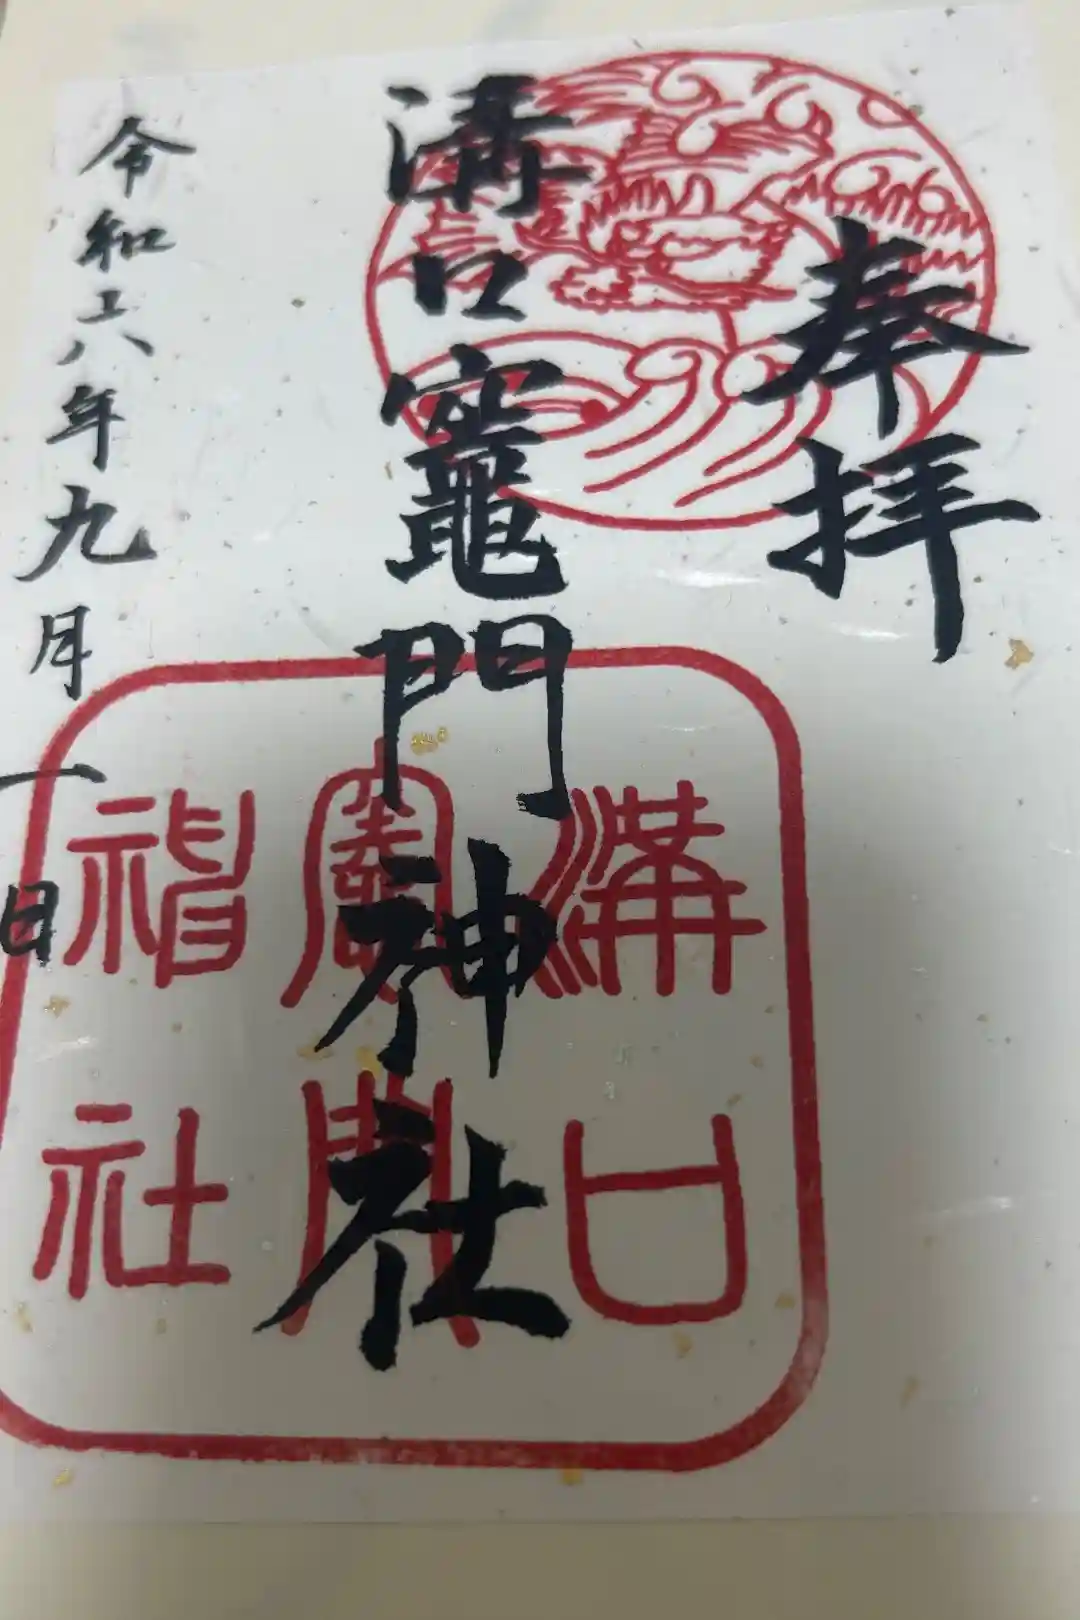 奉拝
溝口竈門神社
令和六年九月一日
溝口
竈門
神社